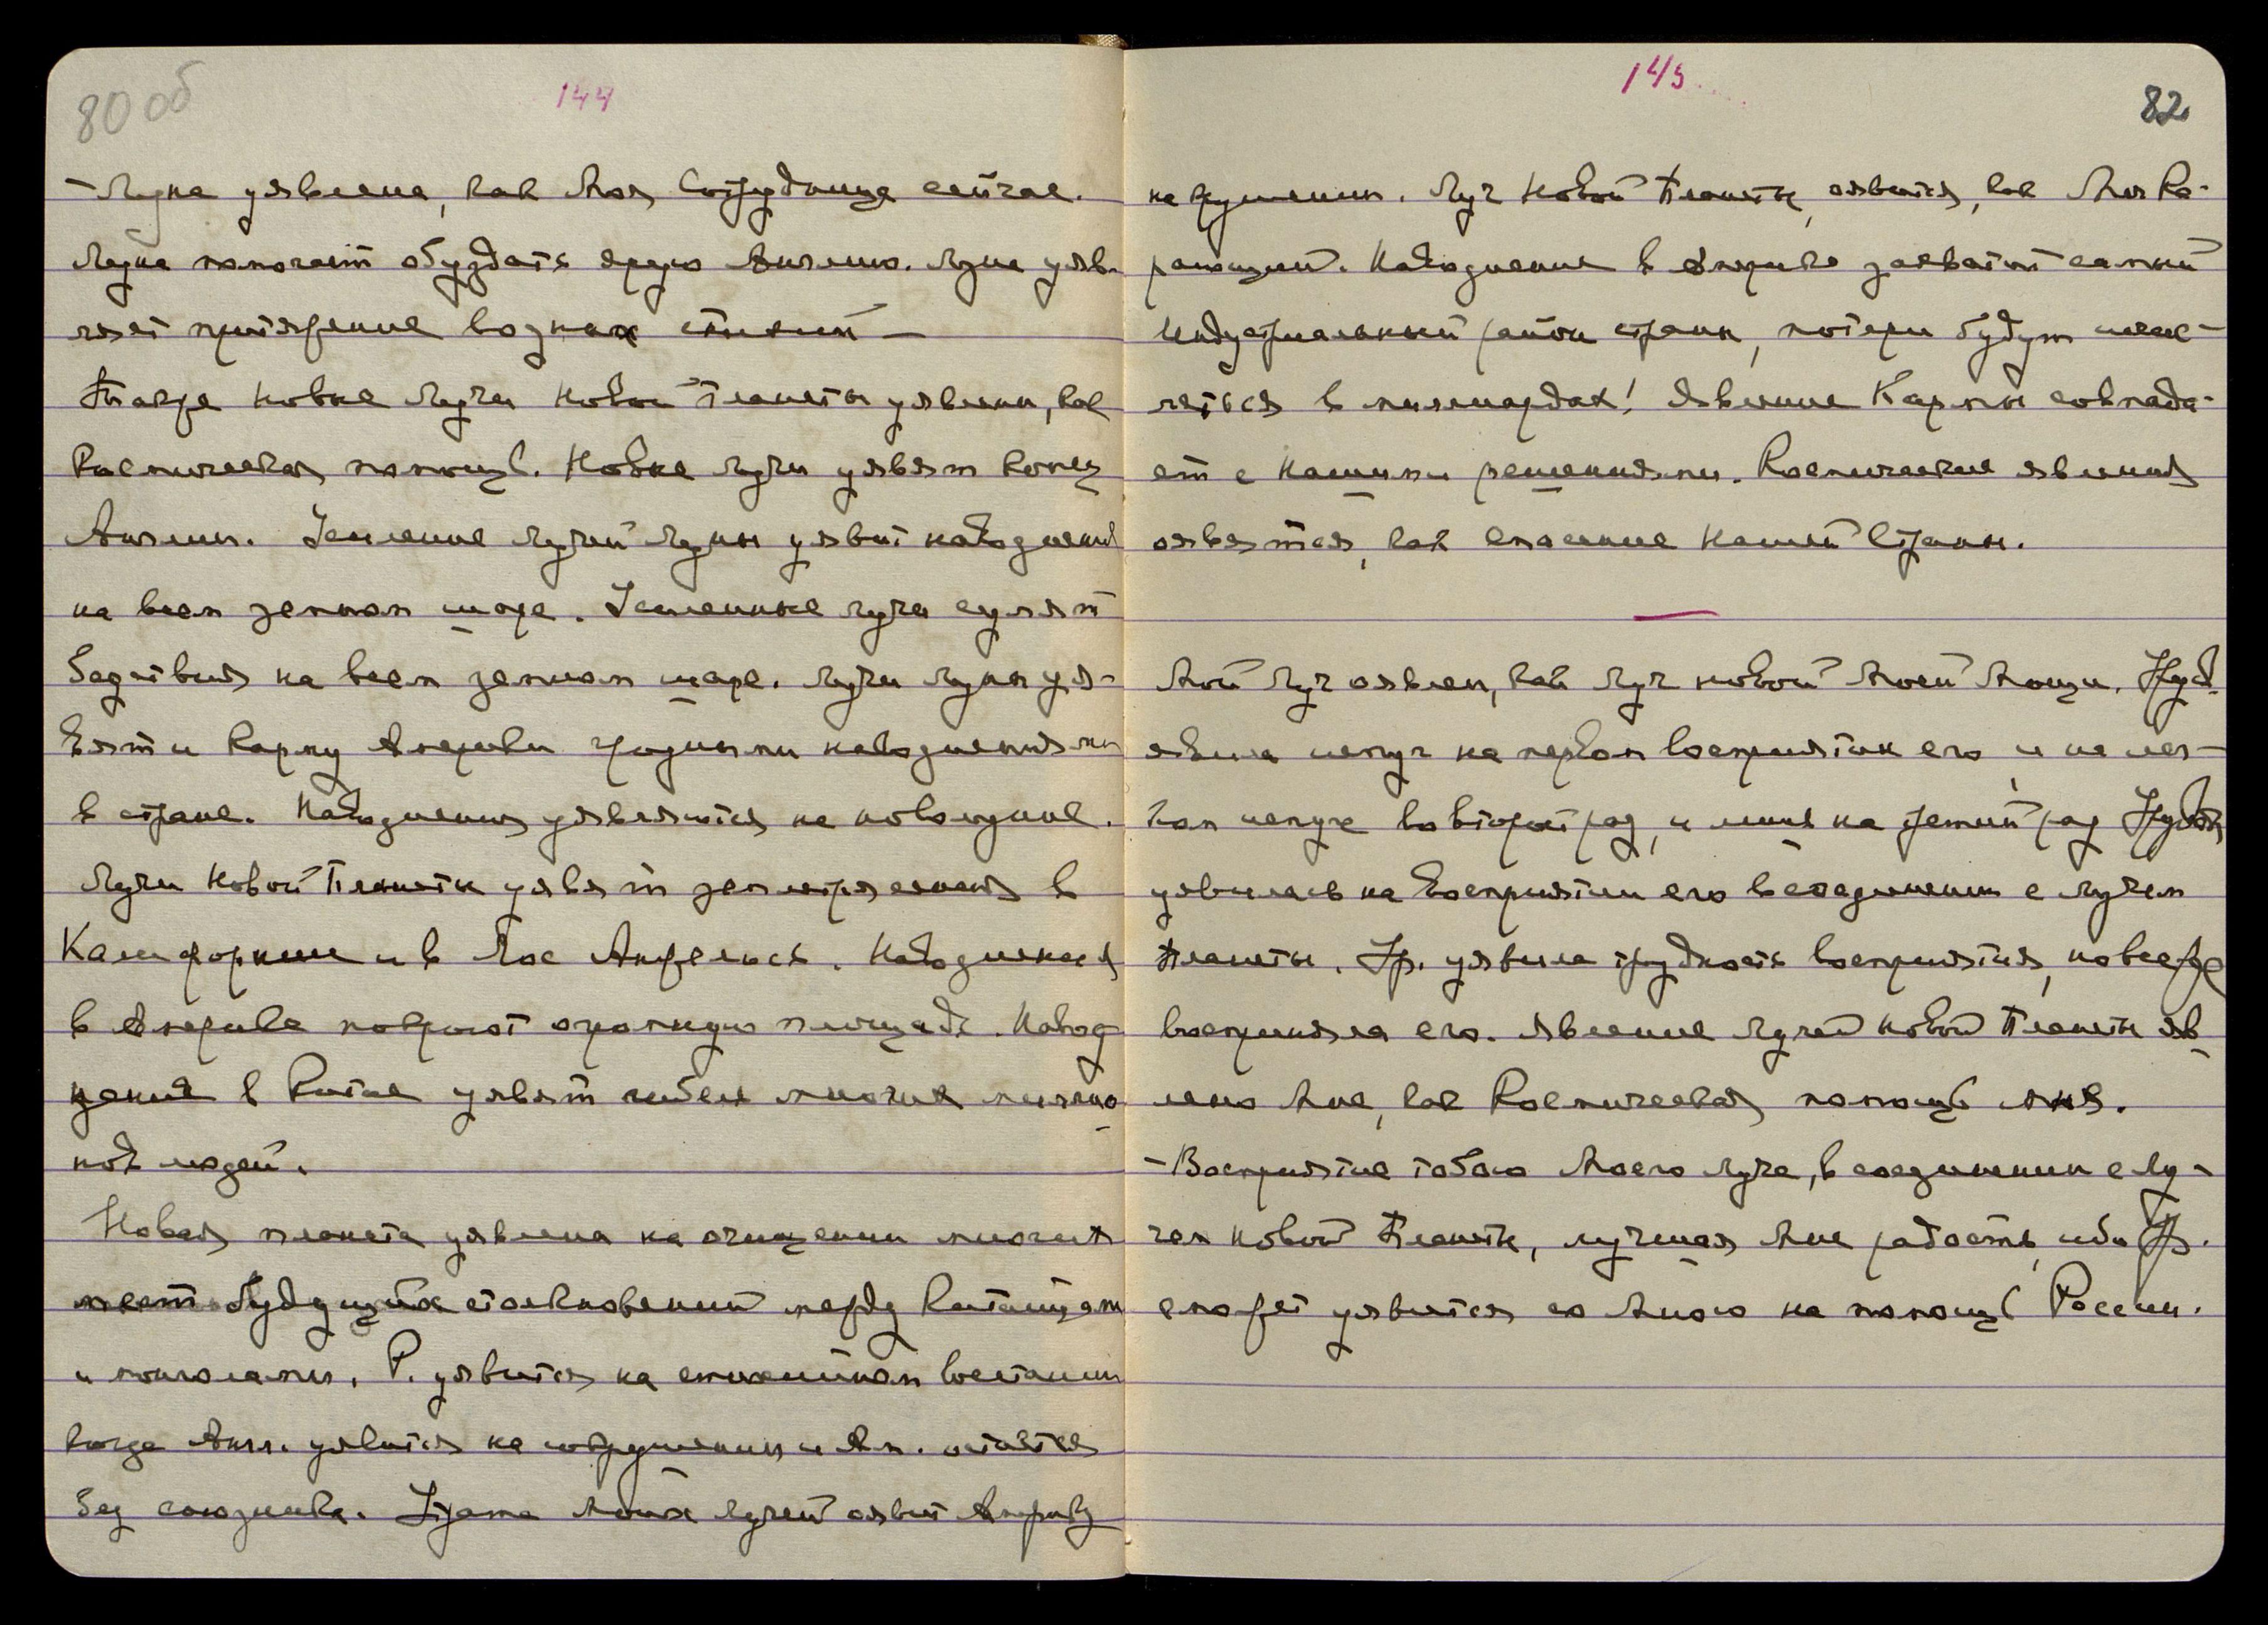 80 об
144
- Луна уявлена, как Моя Сотрудница сейчас.
Луна помогает обуздать ярую Англию. Луна уяв-
ляет притяжение водных стихий –
Также новые Лучи Новой Планеты уявлены, как
Космическая помощь. Новые лучи уявят конец
Англии. Усиление лучей Луны уявит наводнения
на всем земном шаре. Усиленные лучи сулят
бедствия на всем земном шаре. Лучи Луны уя-
вят и Карму Америки грозными наводнениями
в стране. Наводнения уявляются на новолуние.
Лучи Новой Планеты уявят землетрясения в
Калифорнии и в Лос Анжелосе. Наводнения
в Америке покроют огромную площадь. Навод-
нения в Китае уявят гибель многих миллио-
нов людей.
Новая планета уявлена на очищении многих
мест будущих столкновений между Китайцами
и монголами. Р. уявится на восстании
когда Англ. уявится на сокрушении и Ам. останется
без союзника. Моих лучей оявит Америку
145
82
на крушении. Луч Новой Планеты оявится, как Луч Ка-
рающий. Наводнение в Америке захватит самый
индустриальный район страны, потери будут исчис-
ляться в миллиардах! Явление Кармы совпада-
ет с Нашими решениями. Космические явления
оявятся, как спасение Нашей Страны.
Мой Луч оявлен, как Луч новой Моей Мощи.
явила испуг на первом восприятии его и не мень-
во второй раз, и лишь на третий раз
уявилась на восприятии его в соединении с лучом
Планеты. Ур. уявила трудность восприятия, но все же
восприняла его. Явление Лучей Новой Планеты яв-
лено Мне, как Космическая помощь Мне.
- Восприятие тобою Моего Луча, в соединении с Лу-
чом Новой Планеты, лучшая Мне радость, ибо Ур.
сможет уявиться со Мною на помощь России.